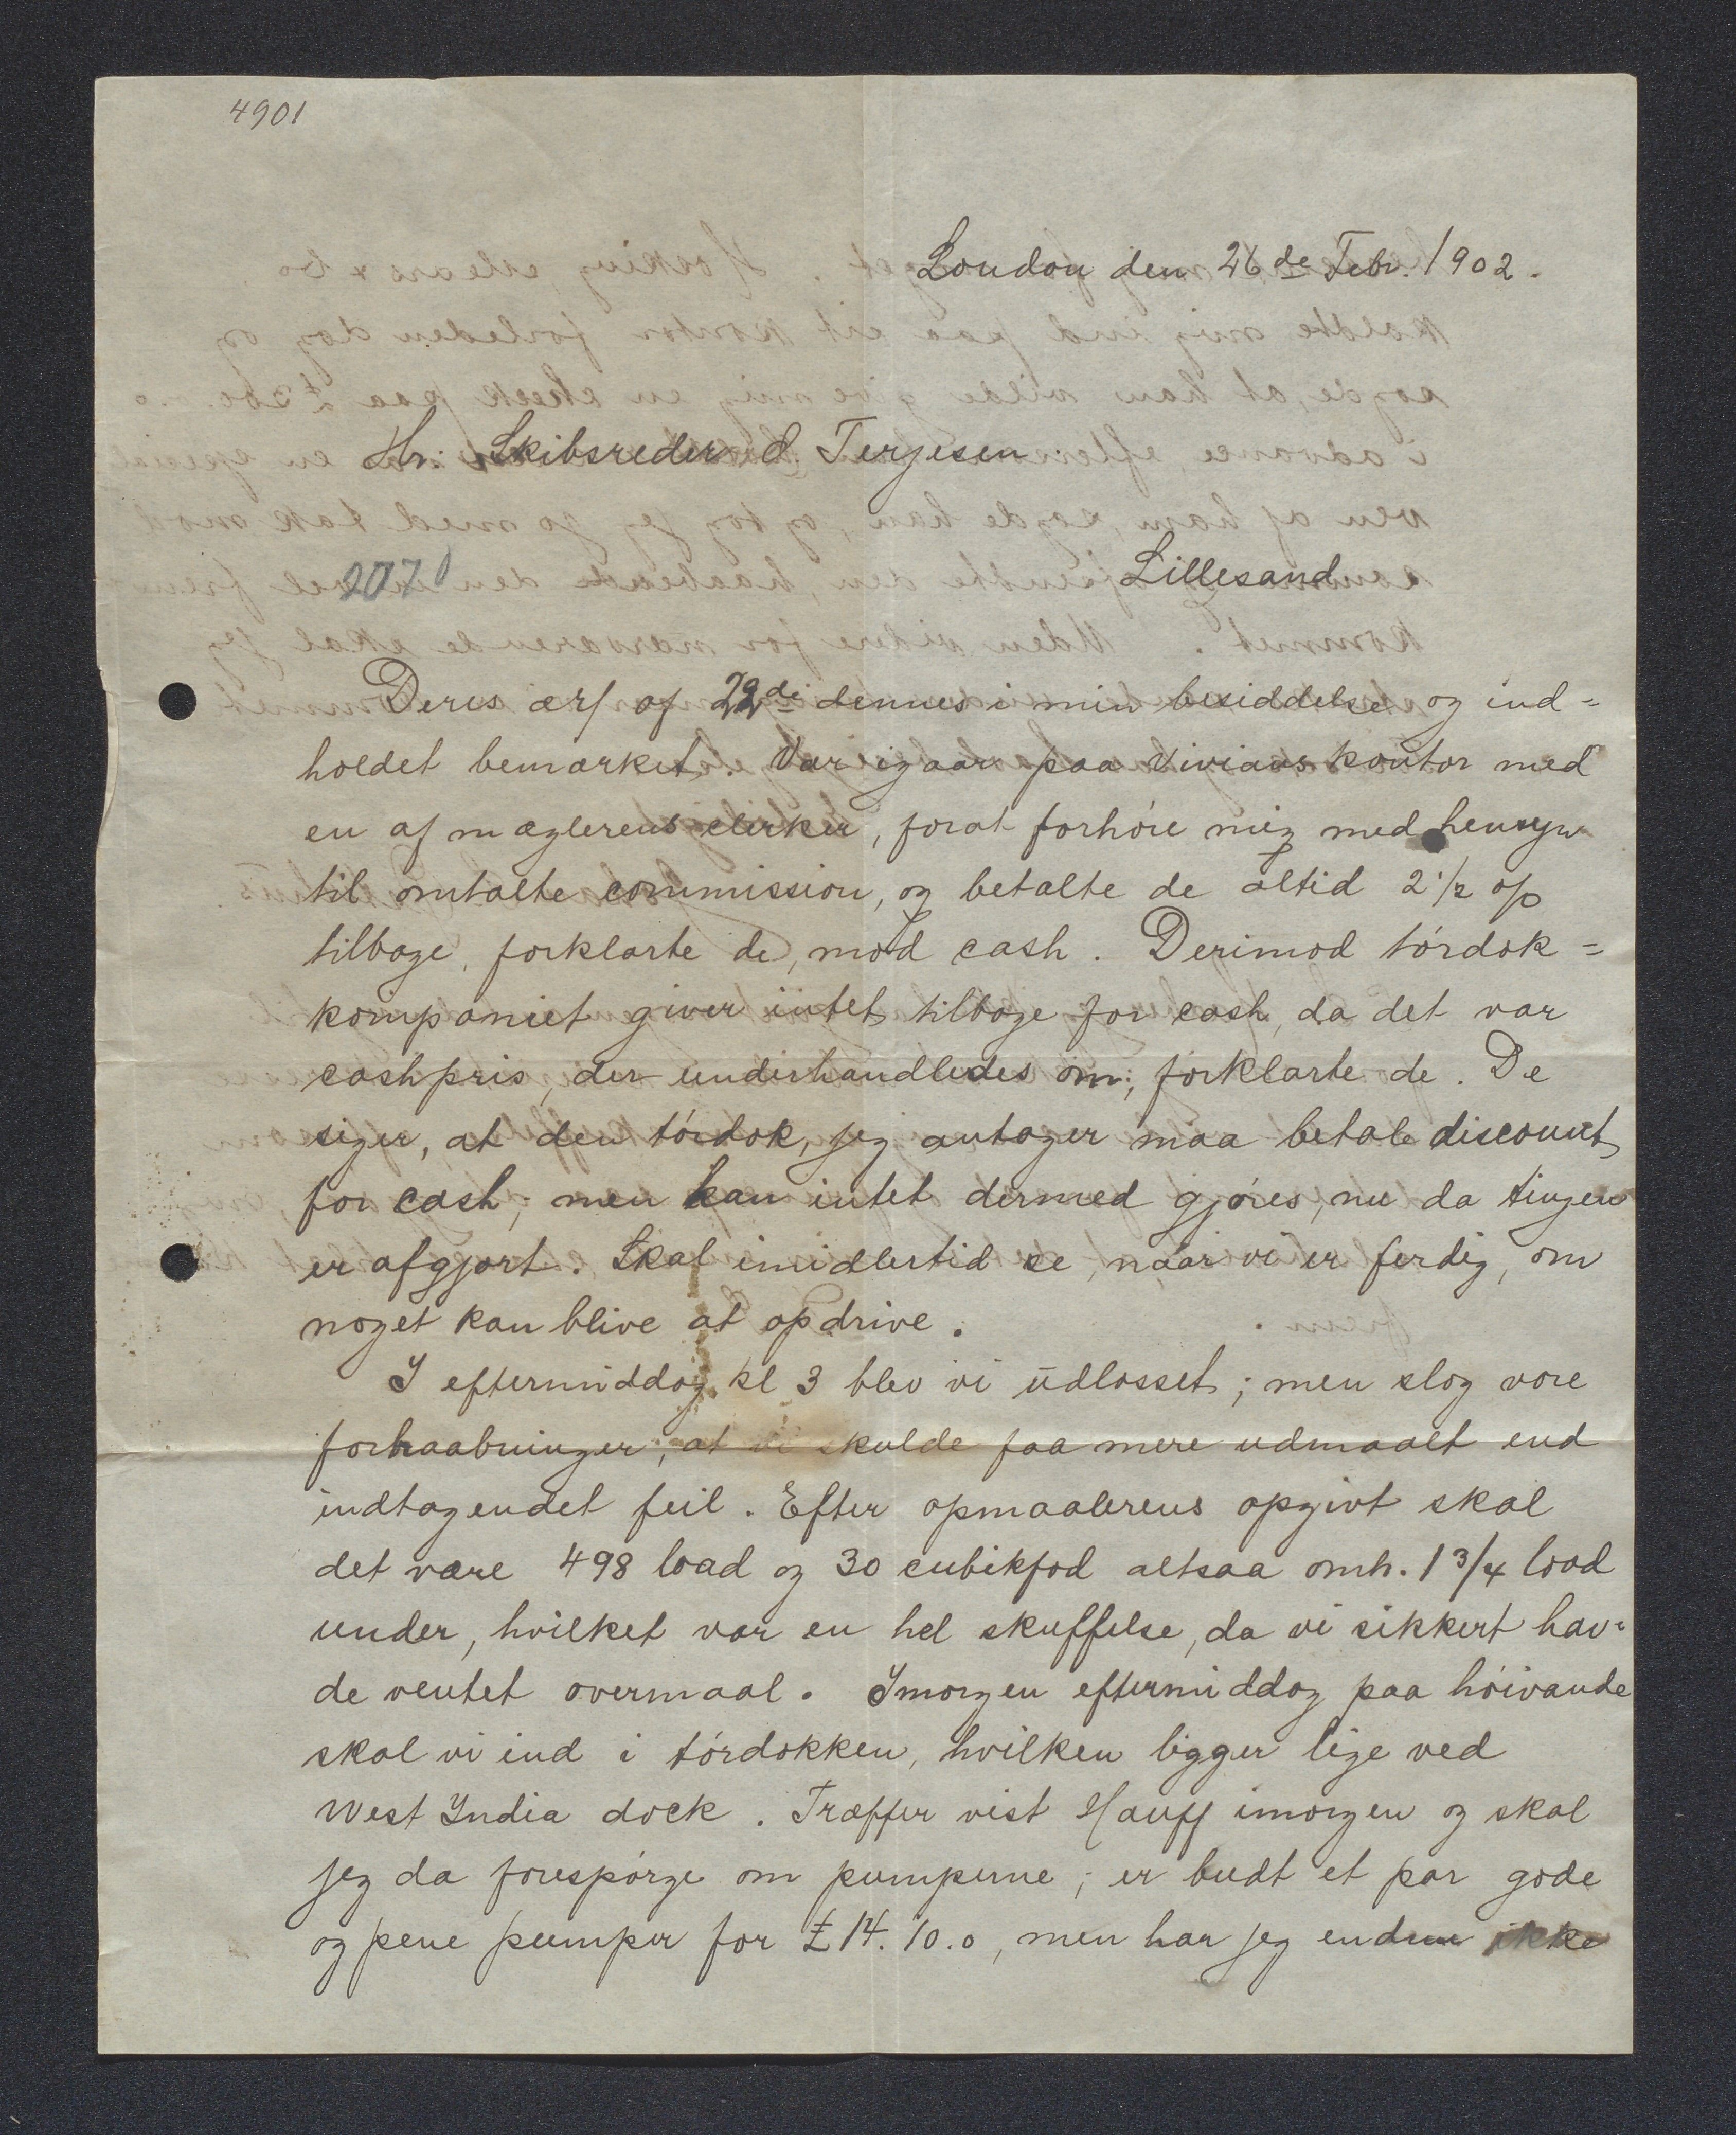 4901
London den 26de Febr. 1902.
Hr. Skibsreder d. Terjesen
2070
Lillesand
Deres ærf af 22de dennes i min besiddelse og ind=
holdet bemærket. Var igaar paa Vivians kontor med
en af mæglerens clerker, forat forhöre mig med hensyn
til omtalte commission, og betalte de altid 2 1/2 op
tilbage, forklarte de, mod cash. Derimod tórdok=
kompaniet giver intet tilbage for cash, da det var
cashpris, der underhandledes om; forklarte de. De
siger, at den tórdok, jeg antager maa betale discount
for cash; men kan intet dermed gjóres, nu da tingen
er afgjort. Skal imidlertid se, naar vi er ferdig, om
noget kan blive at opdrive.
I eftermiddag kl 3 blev vi udlosset; men slog vore
forhaabninger, at vi skulde faa mere udmaalt end
indtagendet feil. Efter opmaalerens opgivt skal
det være 498 load og 30 cubikfod altsaa omh. 1 3/4 load
under, hvilket var en hel skuffelse, da vi sikkert hav=
de ventet overmaal. Imorgen eftermiddag paa hóivande
skal vi ind i tórdokken, hvilken ligger lige ved
West India dock. Træffer vist Hauff imorgen og skal
jeg da forespórge om pumperne; er budt et par gode
og pene pumper for £ 14. 10. 0, men har jeg endnu ikke